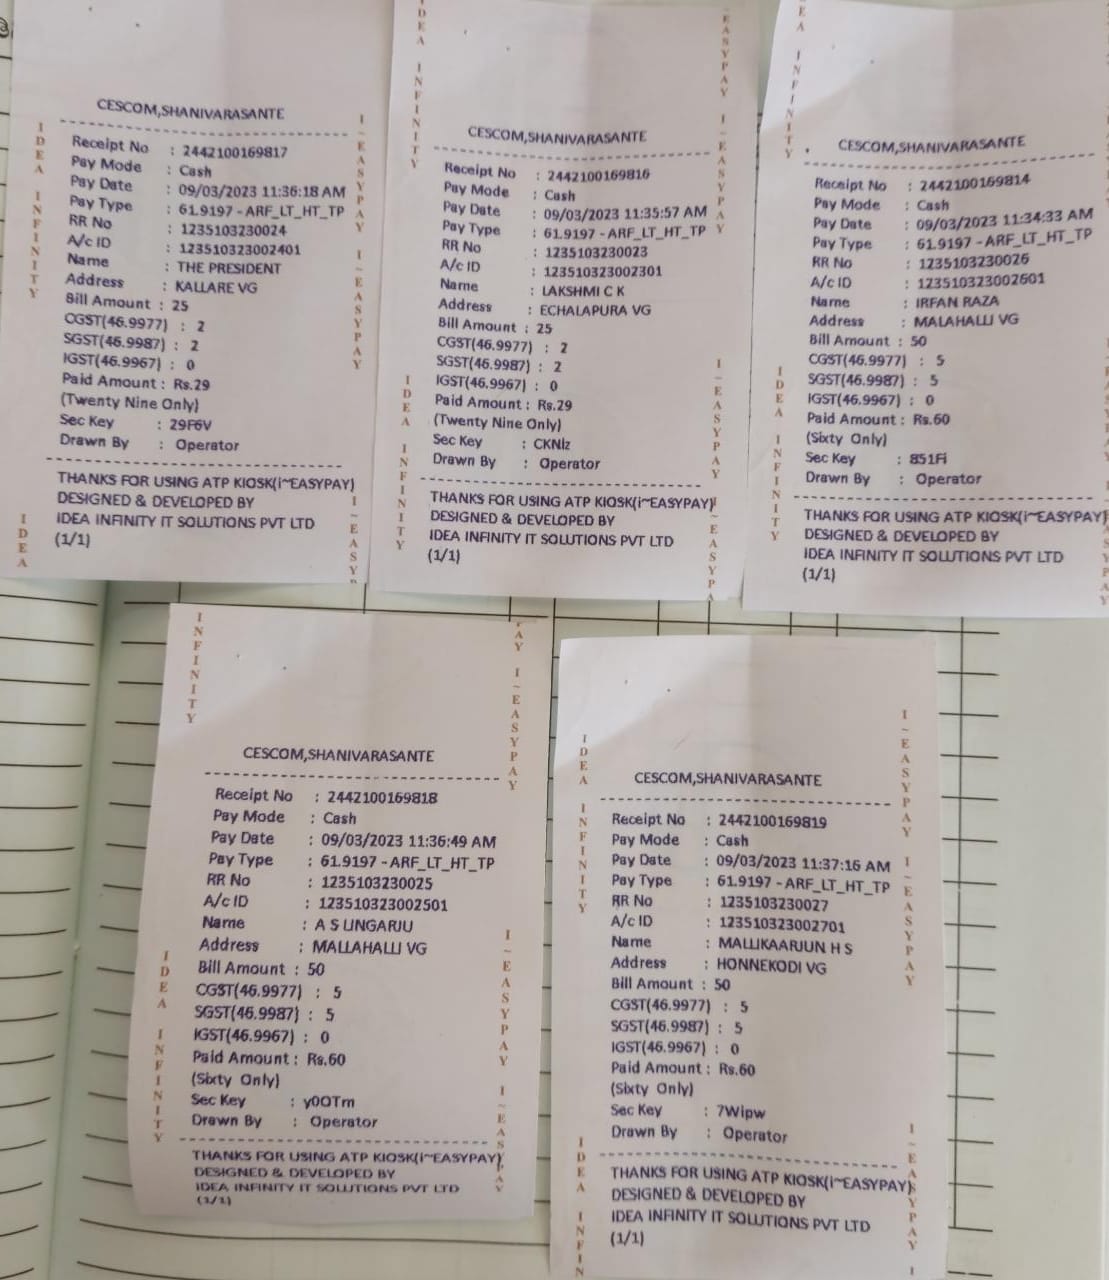 CESCOM,SHANIVARASANTE
Receipt No : 2442100169817
Pay Mode : Cash
Pay Date : 09/03/2023 11:36:18 AM
Pay Type : 61.9197 - ARF_LT_HT_TP
RR No : 1235103230024
A/c ID : 123510323002401
Name : THE PRESIDENT
Address : KALLARE VG
Bill Amount : 25
CGST(46.9977) : 2
SGST(46.9987) : 2
IGST(46.9967) : 0
Paid Amount : Rs.29
(Twenty Nine Only)
Sec Key : 29F6V
Drawn By : Operator
THANKS FOR USING ATP KIOSK(i~EASYPAY)
DESIGNED & DEVELOPED BY
IDEA INFINITY IT SOLUTIONS PVT LTD
(1/1)
IDEA INFINITY
IDEA
I~EASYPAY I~EASYPAY
I~EASYP
CESCOM,SHANIVARASANTE
Receipt No : 2442100169816
Pay Mode : Cash
Pay Date : 09/03/2023 11:35:57 AM
Pay Type : 61.9197 - ARF_LT_HT_TP
RR No : 1235103230023
A/c ID : 123510323002301
Name : LAKSHMI C K
Address : ECHALAPURA VG
Bill Amount : 25
CGST(46.9977) : 2
SGST(46.9987) : 2
IGST(46.9967) : 0
Paid Amount : Rs.29
(Twenty Nine Only)
Sec Key : CKNlz
Drawn By : Operator
THANKS FOR USING ATP KIOSK(i~EASYPAY)
DESIGNED & DEVELOPED BY
IDEA INFINITY IT SOLUTIONS PVT LTD
(1/1)
IDEA INFINITY
IDEA INFINITY
EASYPAY I~EASYPAY
I~EASYPAY
I~EASYPA
CESCOM,SHANIVARASANTE
Receipt No : 2442100169814
Pay Mode : Cash
Pay Date : 09/03/2023 11:34:33 AM
Pay Type : 61.9197 - ARF_LT_HT_TP
RR No : 1235103230026
A/c ID : 123510323002601
Name : IRFAN RAZA
Address : MALAHALLI VG
Bill Amount : 50
CGST(46.9977) : 5
SGST(46.9987) : 5
IGST(46.9967) : 0
Paid Amount : Rs.60
(Sixty Only)
Sec Key : 851Fi
Drawn By : Operator
THANKS FOR USING ATP KIOSK(i~EASYPAY)
DESIGNED & DEVELOPED BY
IDEA INFINITY IT SOLUTIONS PVT LTD
(1/1)
EA INFINITY
IDEA INFINITY
CESCOM,SHANIVARASANTE
Receipt No : 2442100169818
Pay Mode : Cash
Pay Date : 09/03/2023 11:36:49 AM
Pay Type : 61.9197 - ARF_LT_HT_TP
RR No : 1235103230025
A/c ID : 123510323002501
Name : A S LINGARJU
Address : MALLAHALLI VG
Bill Amount : 50
CGST(46.9977) : 5
SGST(46.9987) : 5
IGST(46.9967) : 0
Paid Amount : Rs.60
(Sixty Only)
Sec Key : y0OTm
Drawn By : Operator
THANKS FOR USING ATP KIOSK(i~EASYPAY)
DESIGNED & DEVELOPED BY
IDEA INFINITY IT SOLUTIONS PVT LTD
(1/1)
INFINITY
IDEA INFINITY
PAY I~EASYPAY
I~EASYPAY I~EASYPAY
CESCOM,SHANIVARASANTE
Receipt No : 2442100169819
Pay Mode : Cash
Pay Date : 09/03/2023 11:37:16 AM
Pay Type : 61.9197 - ARF_LT_HT_TP
RR No : 1235103230027
A/c ID : 123510323002701
Name : MALLIKAARJUN H S
Address : HONNEKODI VG
Bill Amount : 50
CGST(46.9977) : 5
SGST(46.9987) : 5
IGST(46.9967) : 0
Paid Amount : Rs.60
(Sixty Only)
Sec Key : 7Wipw
Drawn By : Operator
THANKS FOR USING ATP KIOSK(i~EASYPAY)
DESIGNED & DEVELOPED BY
IDEA INFINITY IT SOLUTIONS PVT LTD
(1/1)
IDEA INFINITY
IDEA INFIN
I~EASYPAY I~EASYPAY
I~EASYPAY I